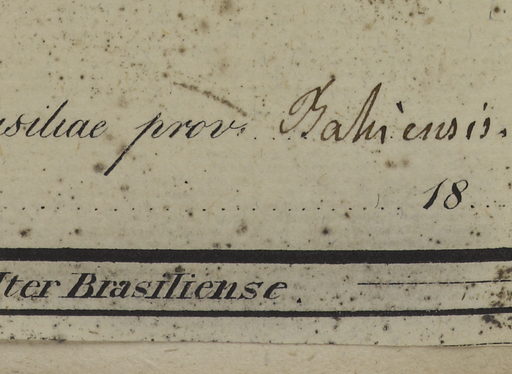 asiliae prov. Bahiensis.
18
Iter Brasiliense.